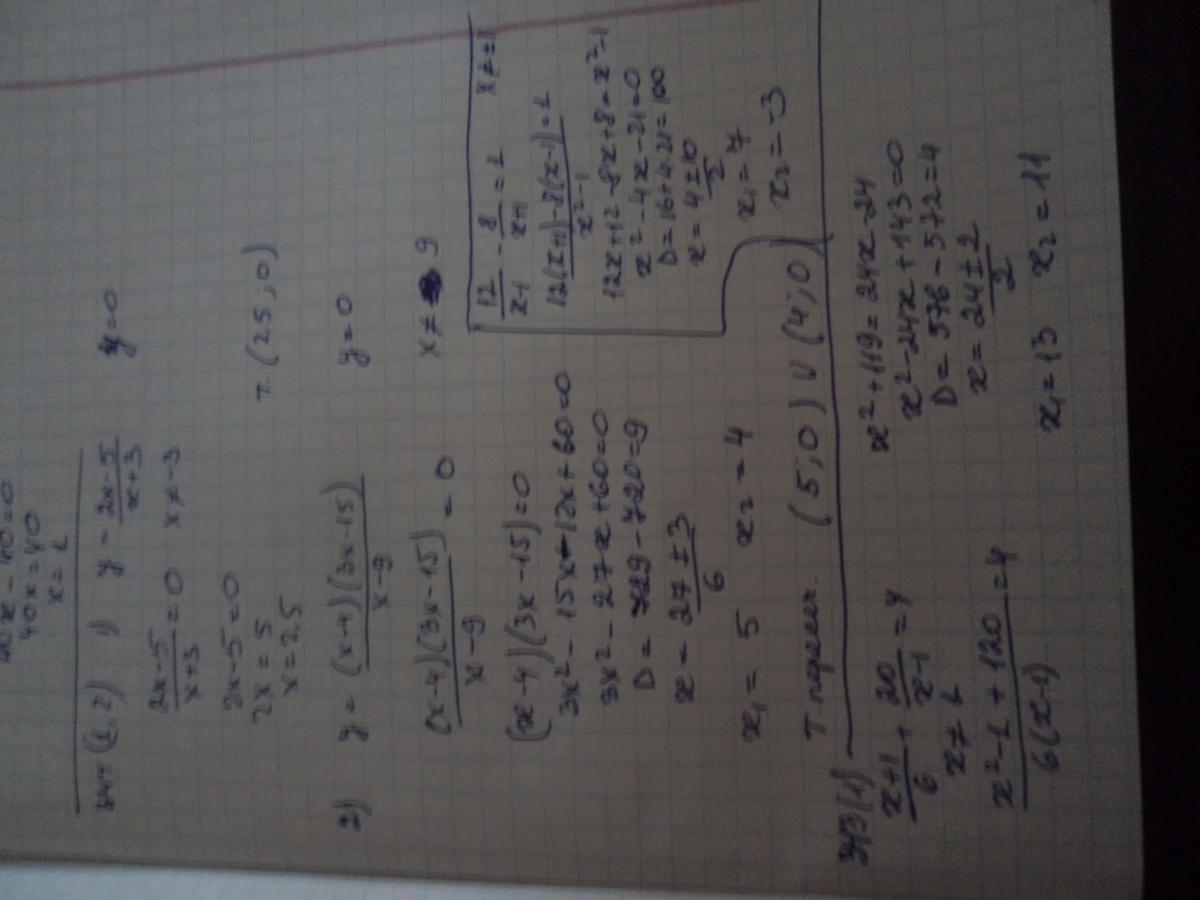 40x = 40
x = 1
1) y = (2x-5)/(x+3) y=0
(2x-5)/(x+3) = 0 x≠-3
2x-5=0
2x = 5
x = 2,5
т. (2,5; 0)
2) y = (x-4)(3x-15)/(x-9) y = 0
(x-4)(3x-15)/(x-9) = 0 x≠ 9
(x-4)(3x-15)=0
3x²-15x-12x+60=0
3x²-27x+60=0
D = 729-720=9
x = (27±3)/6
x₁ = 5 x₂ = 4
т. пересеч. (5; 0) U (4; 0)
12/(x-1) - 8/(x+1) = 1 x≠±1
(12(x+1)-8(x-1))/(x²-1) = 1
12x+12-8x+8=x²-1
x²-4x-21=0
D=16+4·21=100
x=(4±10)/2
x₁=7
x₂=-3
(x+1)/6 + 20/(x-1) = 4
x≠1
(x²-1+120)/(6(x-1)) = 4
x²+119=24x-24
x²-24x+143=0
D=576-572=4
x=(24±2)/2
x₁=13 x₂=11